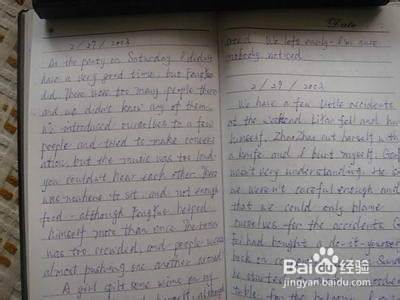 2/27/2003
At the party on Saturday I didn't
have a very good time, but FengYue
did. There were too many people there
and we didn't know any of them.
We introduced ourselves to a few
people and tried to make convers
ation but the music was too loud
you couldn't hear each other. There
was nowhere to sit, and not enough
food - although FengYue helped
himself more than once. The room
was too crowded, and people were
almost pushing one another around.
A girl spilt some wine on my
Date
We left early - I'm sure
nobody noticed.
2/29/2003
We have a few little accidents
at the weekend. fell and hurt
himself, ZhaoZhao cut herself with
a knife and I burnt myself.
wasn't very understanding. He
we weren't careful enough and
that we could only blame
ourselves for the accidents.
had bought a do-it-yourself
back in
he started
table, from the
Baidu 经验
jingyan.baidu.com